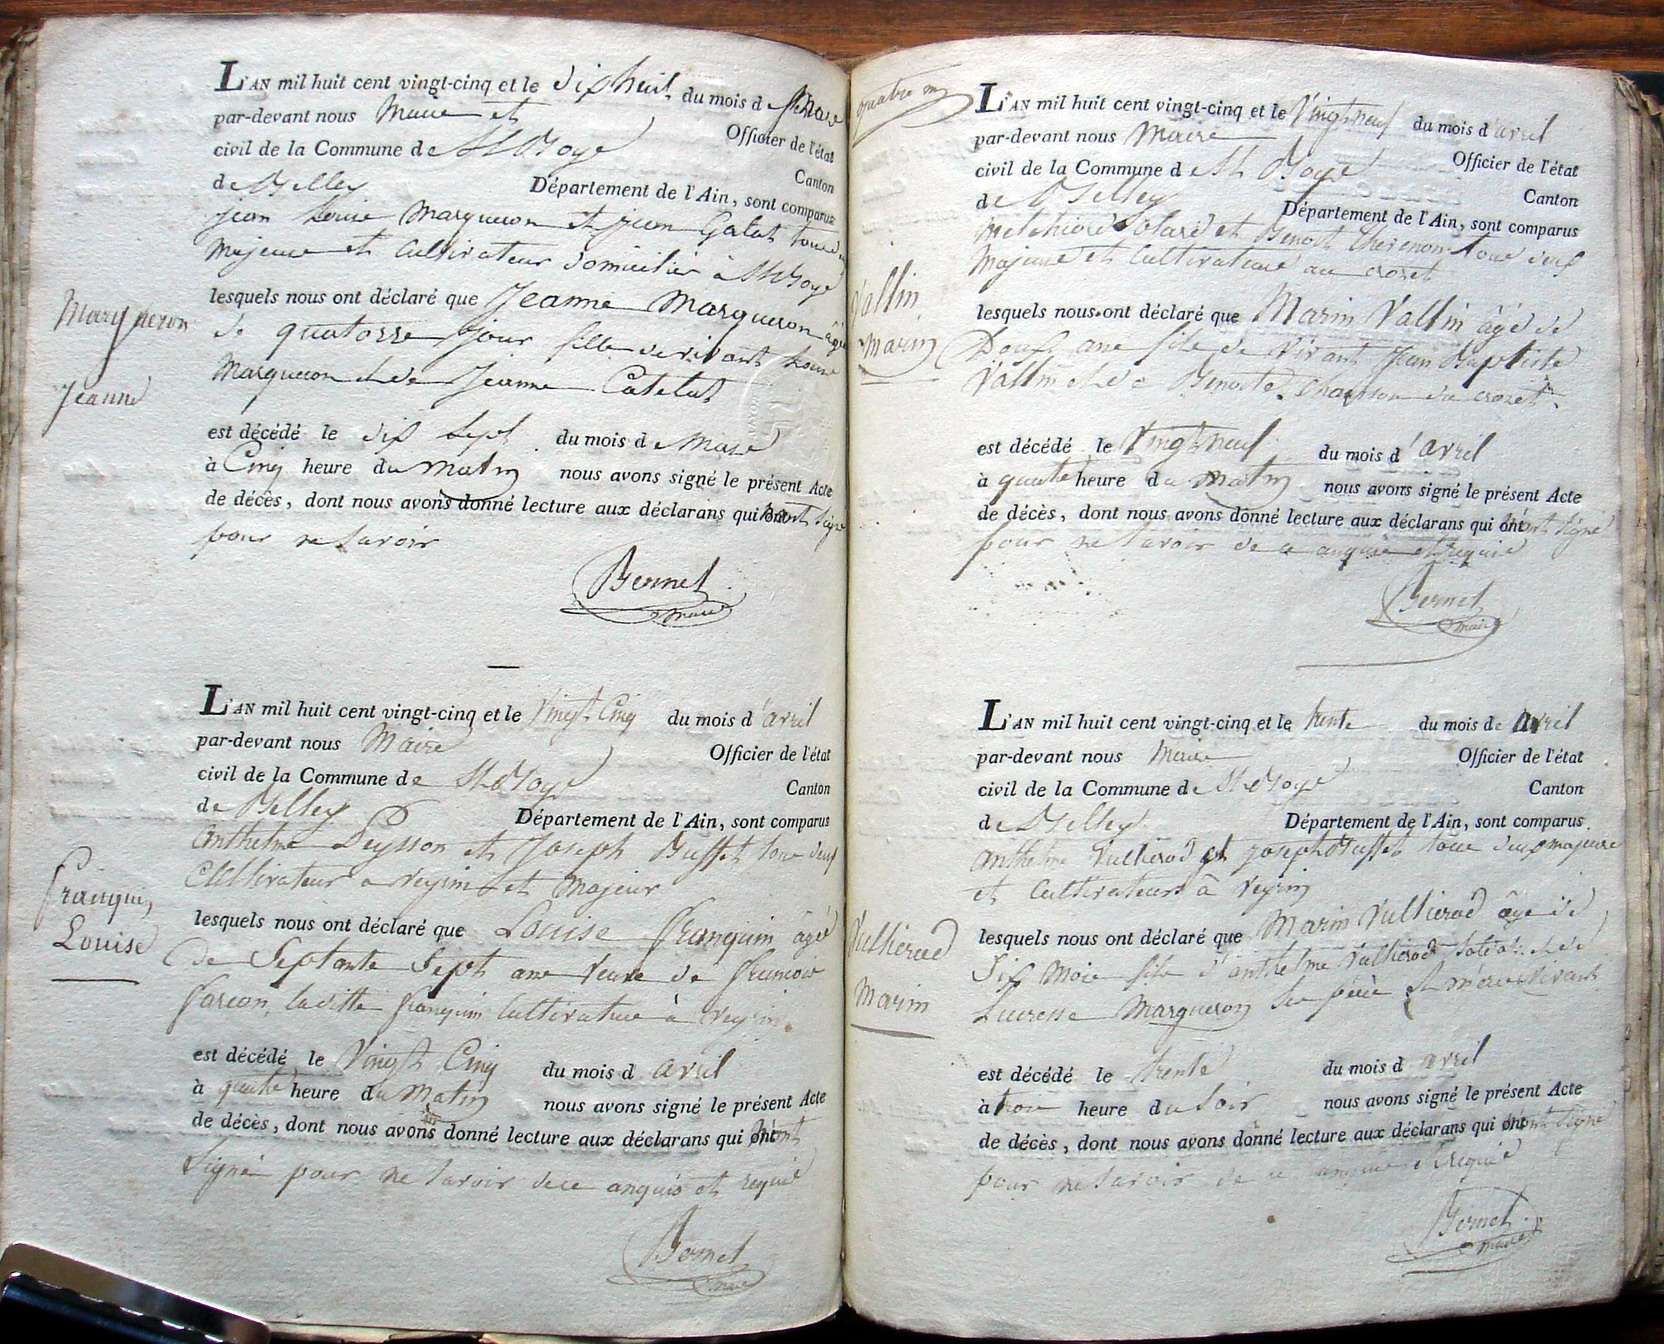 L'AN mil huit cent vingt-cinq et le dix huit du mois de mars
par-devant nous Maire et Officier de l'état
civil de la Commune de St Boys Canton
de Belley Département de l'Ain, sont comparus
jean Louis Marqueron et jean Catat tous deux
Majeur et Cultivateur domicilié à St Boys
lesquels nous ont déclaré que Jeanne Marqueron âgé
de quatorze jour fille de vivant
Marqueron et de Jeanne Catelat
est décédé le dix sept du mois de Mars
à Cinq heure du matin nous avons signé le présent Acte
de décès, dont nous avons donné lecture aux déclarans qui ont n'ont signé
pour ne savoir
Bernet
maire
Marqueron
Jeanne
L'AN mil huit cent vingt-cinq et le Vingt Cinq du mois d'avril
par-devant nous Maire Officier de l'état
civil de la Commune de St Boys Canton
de Belley Département de l'Ain, sont comparus
Anthelme Peysson et Joseph Buffet tous deux
Cultivateur a veyrin et Majeur
lesquels nous ont déclaré que Louise Franquin âgé
de Septante Sept ans veuve de francois
garcon, laditte franquin Cultivatrice à veyrin
est décédé le Vingt Cinq du mois d avril
à quatre heure du Matin nous avons signé le présent Acte
de décès, dont nous avons donné lecture aux déclarans qui ont n'ont
Signé pour ne savoir de ce anquis et requis
Bernet
maire
Franquin
Louise
quatre
L'AN mil huit cent vingt-cinq et le Vingt neuf du mois d'avril
par-devant nous Maire Officier de l'état
civil de la Commune de St Boys Canton
de Belley Département de l'Ain, sont comparus
Melchior et Benoit Thevenon tous deux
Majeurs et Cultivateurs au crozet
lesquels nous ont déclaré que Marin Vallin âgé de
Douze ans fils de Vivant Jean Baptiste
Vallin et de Benoite du crozet
est décédé le Vingt neuf du mois d'avril
à quatre heure du Matin nous avons signé le présent Acte
de décès, dont nous avons donné lecture aux déclarans qui ont n'ont signé
pour ne savoir de ce anquis et requis
Bernet
maire
Vallin
Marin
L'AN mil huit cent vingt-cinq et le trente du mois de avril
par-devant nous Maire Officier de l'état
civil de la Commune de St Boys Canton
de Belley Département de l'Ain, sont comparus
Anthelme Vullierod et joseph Buffet tous deux majeurs
et Cultivateurs à veyrin
lesquels nous ont déclaré que Marin Vullierod âgé de
Six Mois fils d'anthelme Vullierod et de
Lucresse Marqueron Ses père et mère Vivants
est décédé le trente du mois d avril
à trois heure du Soir nous avons signé le présent Acte
de décès, dont nous avons donné lecture aux déclarans qui ont n'ont signé
pour ne savoir de ce anquis et requis
Bernet
maire
Vullierod
Marin